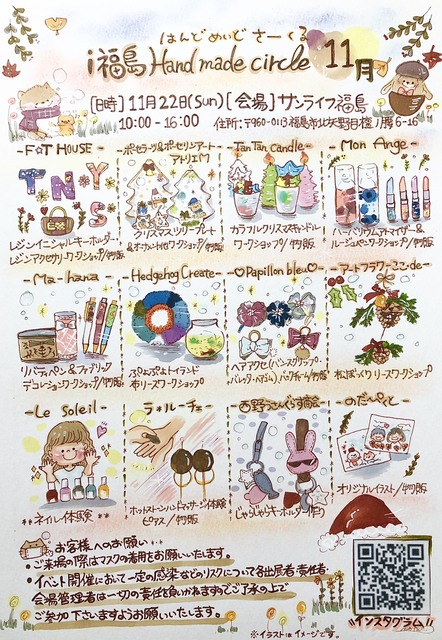 はんどめいどさーくる
i福島 Hand made circle 11月
[日時] 11月22日(Sun) [会場] サンライフ福島
10:00 - 16:00 住所:〒960-0113 福島市北矢野目檀ノ腰6-16
- F☆T HOUSE -
T N Y S
レジンイニシャルキーホルダー・
レジンアクセサリーワークショップ/物販
- ポーセラーツ&ポーセリンアート
アトリエM -
クリスマスツリープレート
ワークショップ/物販
- TanTan Candle -
カラフルクリスマスキャンドル
ワークショップ/物販
- Mon Ange -
ハーバリウムアトマイザー&
ルージュペンワークショップ/物販
- Ma-hana -
リバティペン&ファブリック
デコレーションワークショップ/物販
- Hedgehog Create -
ぷよぷよトイランド
布リースワークショップ
♡Papillon bleu♡
ヘアアクセ(バンスクリップ・
バレッタ・ヘアゴム)・バッグチャーム/物販
- アートフラワーここ・de -
松ぼっくりリースワークショップ
- Le Soleil -
ネイル体験
- ラ・ルーチェ -
ホットストーンハンドマッサージ体験
ピアス/物販
- 西野さんじらず商会 -
じゃらじゃらキーホルダー作り
- のだぴぃと -
オリジナルイラスト/物販
お客様へのお願い
・ご来場の際はマスクの着用をお願いいたします。
・イベント開催において一定の感染などのリスクについて各出展者・責任者・
会場管理者は一切の責任を負いかねますのでご了承の上で
ご参加下さいますようお願いいたします。
※イラストはイメージです。
インスタグラム